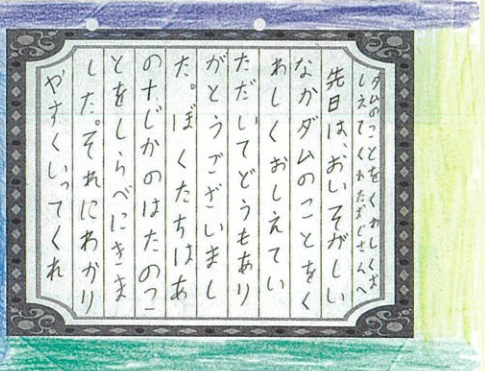 ダムのことをくわしくお
しえてくれたおじさんへ
先日は、おいそがしい
なかダムのことをく
わしくおしえてい
ただいてどうもあり
がとうございまし
た。ぼくたちはあ
の十じかのはたのこ
とをしらべにきま
した。それにわかり
やすくいってくれ